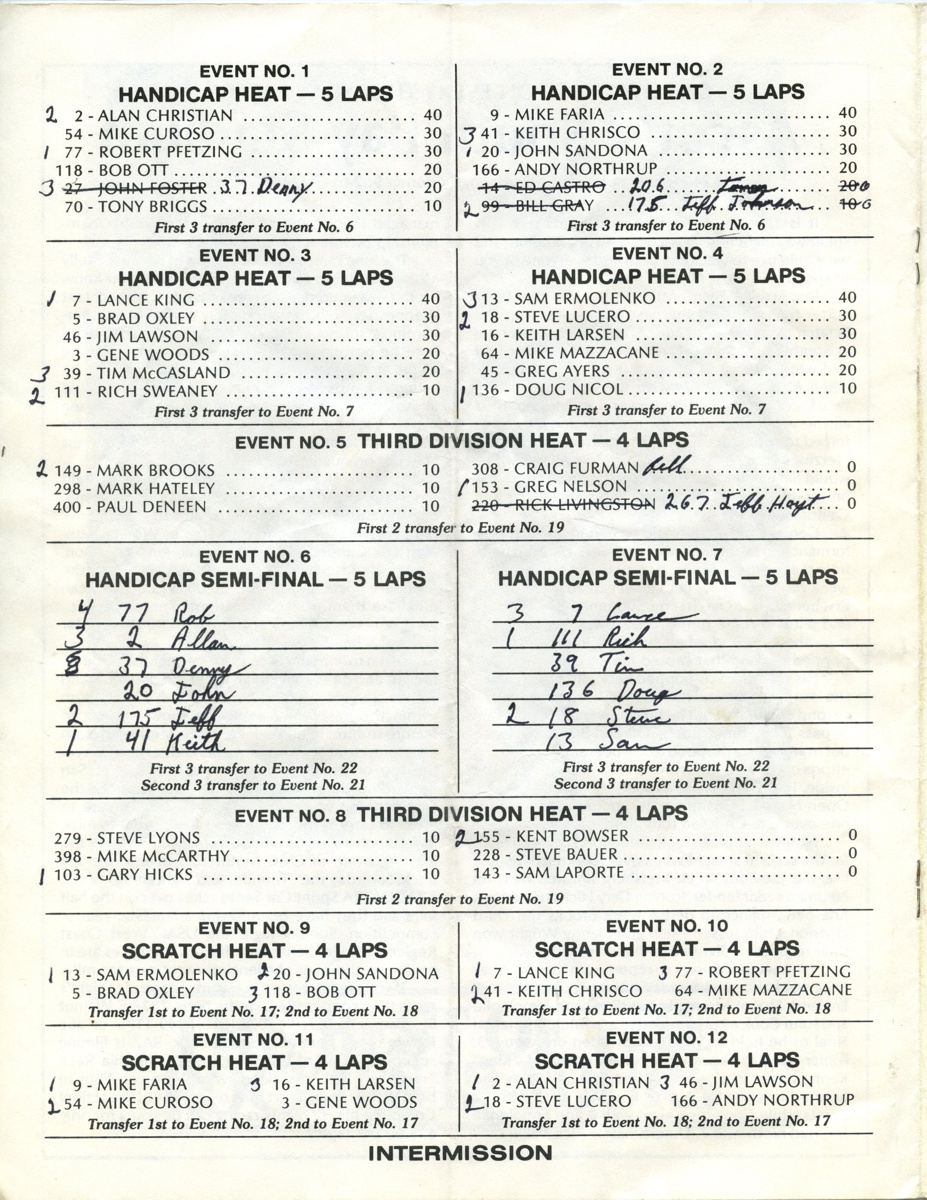 EVENT NO. 1
HANDICAP HEAT — 5 LAPS
2 2 - ALAN CHRISTIAN 40
54 - MIKE CUROSO 30
1 77 - ROBERT PFETZING 30
118 - BOB OTT 20
3 27 - JOHN FOSTER 37 Denny 20
70 - TONY BRIGGS 10
First 3 transfer to Event No. 6
EVENT NO. 2
HANDICAP HEAT — 5 LAPS
9 - MIKE FARIA 40
3 41 - KEITH CHRISCO 30
1 20 - JOHN SANDONA 30
166 - ANDY NORTHRUP 20
14 - ED CASTRO 206 20 0
2 99 - BILL GRAY 175 Jeff Johnson 10 0
First 3 transfer to Event No. 6
EVENT NO. 3
HANDICAP HEAT — 5 LAPS
1 7 - LANCE KING 40
5 - BRAD OXLEY 30
46 - JIM LAWSON 30
3 - GENE WOODS 20
3 39 - TIM McCASLAND 20
2 111 - RICH SWEANEY 10
First 3 transfer to Event No. 7
EVENT NO. 4
HANDICAP HEAT — 5 LAPS
3 13 - SAM ERMOLENKO 40
2 18 - STEVE LUCERO 30
16 - KEITH LARSEN 30
64 - MIKE MAZZACANE 20
45 - GREG AYERS 20
1 136 - DOUG NICOL 10
First 3 transfer to Event No. 7
EVENT NO. 5 THIRD DIVISION HEAT — 4 LAPS
2 149 - MARK BROOKS 10
298 - MARK HATELEY 10
400 - PAUL DENEEN 10
308 - CRAIG FURMAN fell 0
1 153 - GREG NELSON 0
220 - RICK LIVINGSTON 267 Jeff Hoyt 0
First 2 transfer to Event No. 19
EVENT NO. 6
HANDICAP SEMI-FINAL — 5 LAPS
4 77 Rob
3 2 Allan
37 Denny
20 John
2 175 Jeff
1 41 Keith
First 3 transfer to Event No. 22
Second 3 transfer to Event No. 21
EVENT NO. 7
HANDICAP SEMI-FINAL — 5 LAPS
3 7 Lance
1 111 Rich
39 Tim
136 Doug
2 18 Steve
13 Sam
First 3 transfer to Event No. 22
Second 3 transfer to Event No. 21
EVENT NO. 8 THIRD DIVISION HEAT — 4 LAPS
279 - STEVE LYONS 10
398 - MIKE McCARTHY 10
1 103 - GARY HICKS 10
2 155 - KENT BOWSER 0
228 - STEVE BAUER 0
143 - SAM LAPORTE 0
First 2 transfer to Event No. 19
EVENT NO. 9
SCRATCH HEAT — 4 LAPS
1 13 - SAM ERMOLENKO 2 20 - JOHN SANDONA
5 - BRAD OXLEY 3 118 - BOB OTT
Transfer 1st to Event No. 17; 2nd to Event No. 18
EVENT NO. 10
SCRATCH HEAT — 4 LAPS
1 7 - LANCE KING 3 77 - ROBERT PFETZING
2 41 - KEITH CHRISCO 64 - MIKE MAZZACANE
Transfer 1st to Event No. 17; 2nd to Event No. 18
EVENT NO. 11
SCRATCH HEAT — 4 LAPS
1 9 - MIKE FARIA 3 16 - KEITH LARSEN
2 54 - MIKE CUROSO 3 - GENE WOODS
Transfer 1st to Event No. 18; 2nd to Event No. 17
EVENT NO. 12
SCRATCH HEAT — 4 LAPS
1 2 - ALAN CHRISTIAN 3 46 - JIM LAWSON
2 18 - STEVE LUCERO 166 - ANDY NORTHRUP
Transfer 1st to Event No. 18; 2nd to Event No. 17
INTERMISSION